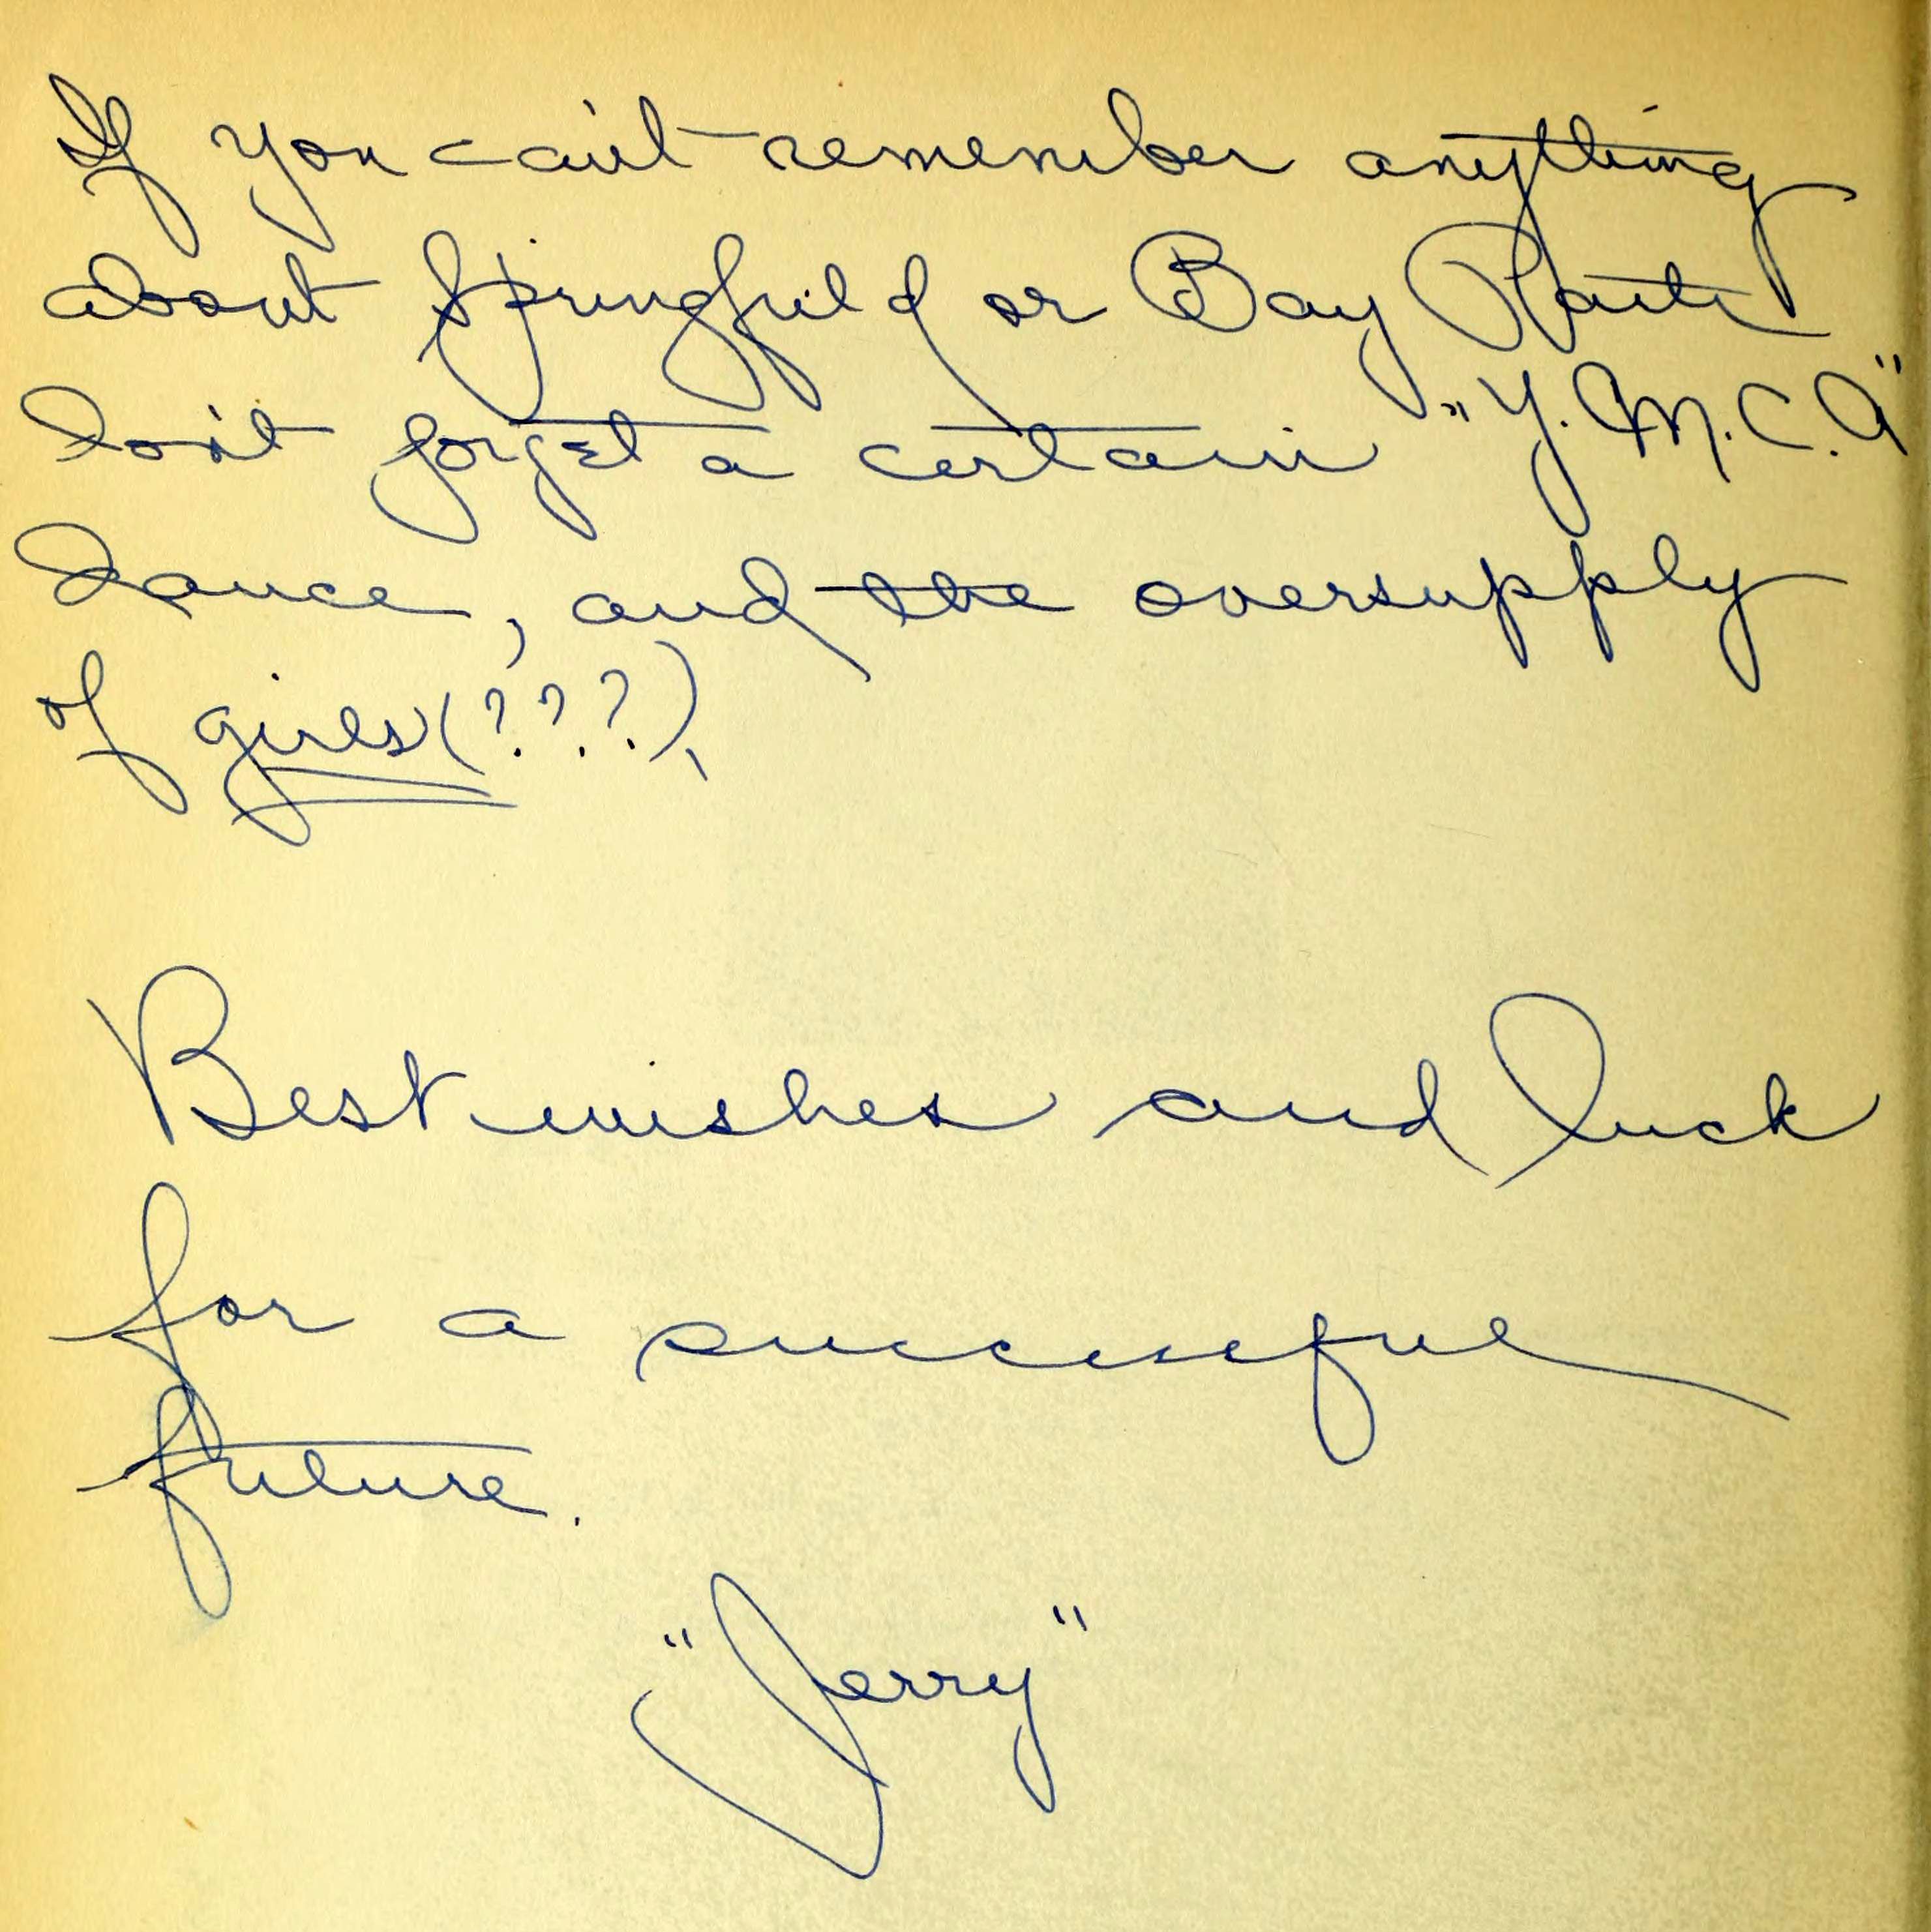 If you can't remember anything
about Springfield or Bay Path
don't forget a certain "Y.M.C.A"
Dance, and the oversupply
of girls (???),
Best wishes and luck
for a successful
future.
"Jerry"